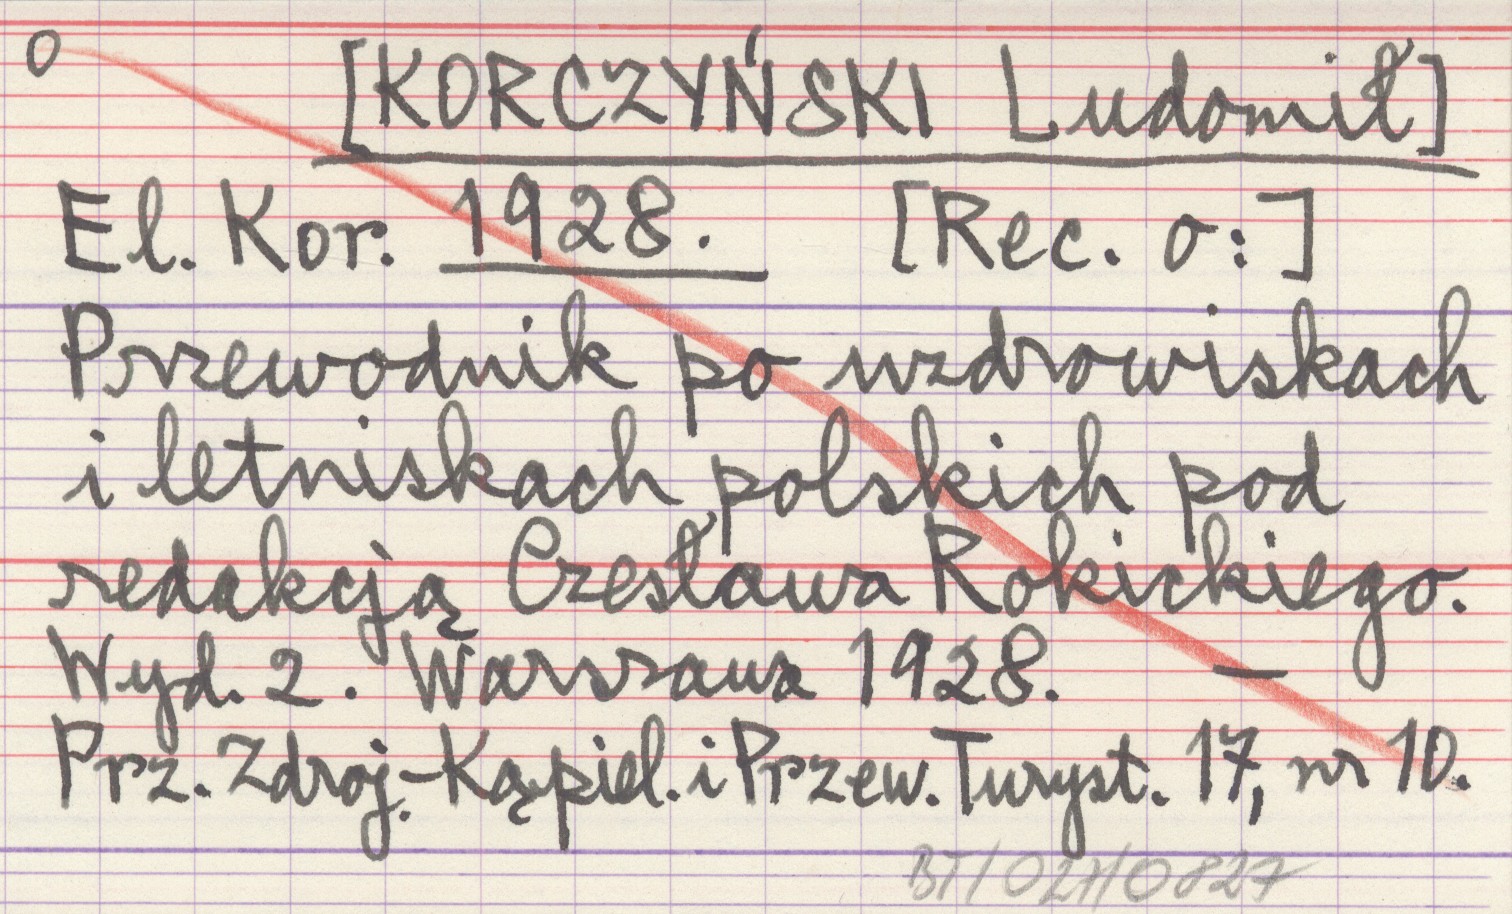 0 [KORCZYŃSKI Ludomił]
El. Kor. 1928. [Rec. o:]
Przewodnik po uzdrowiskach
i letniskach polskich pod
redakcją Czesława Rokickiego.
Wyd. 2. Warszawa 1928. —
Prz. Zdroj.-Kąpiel. i Przew. Turyst. 17, nr 10.
BT/027/0827